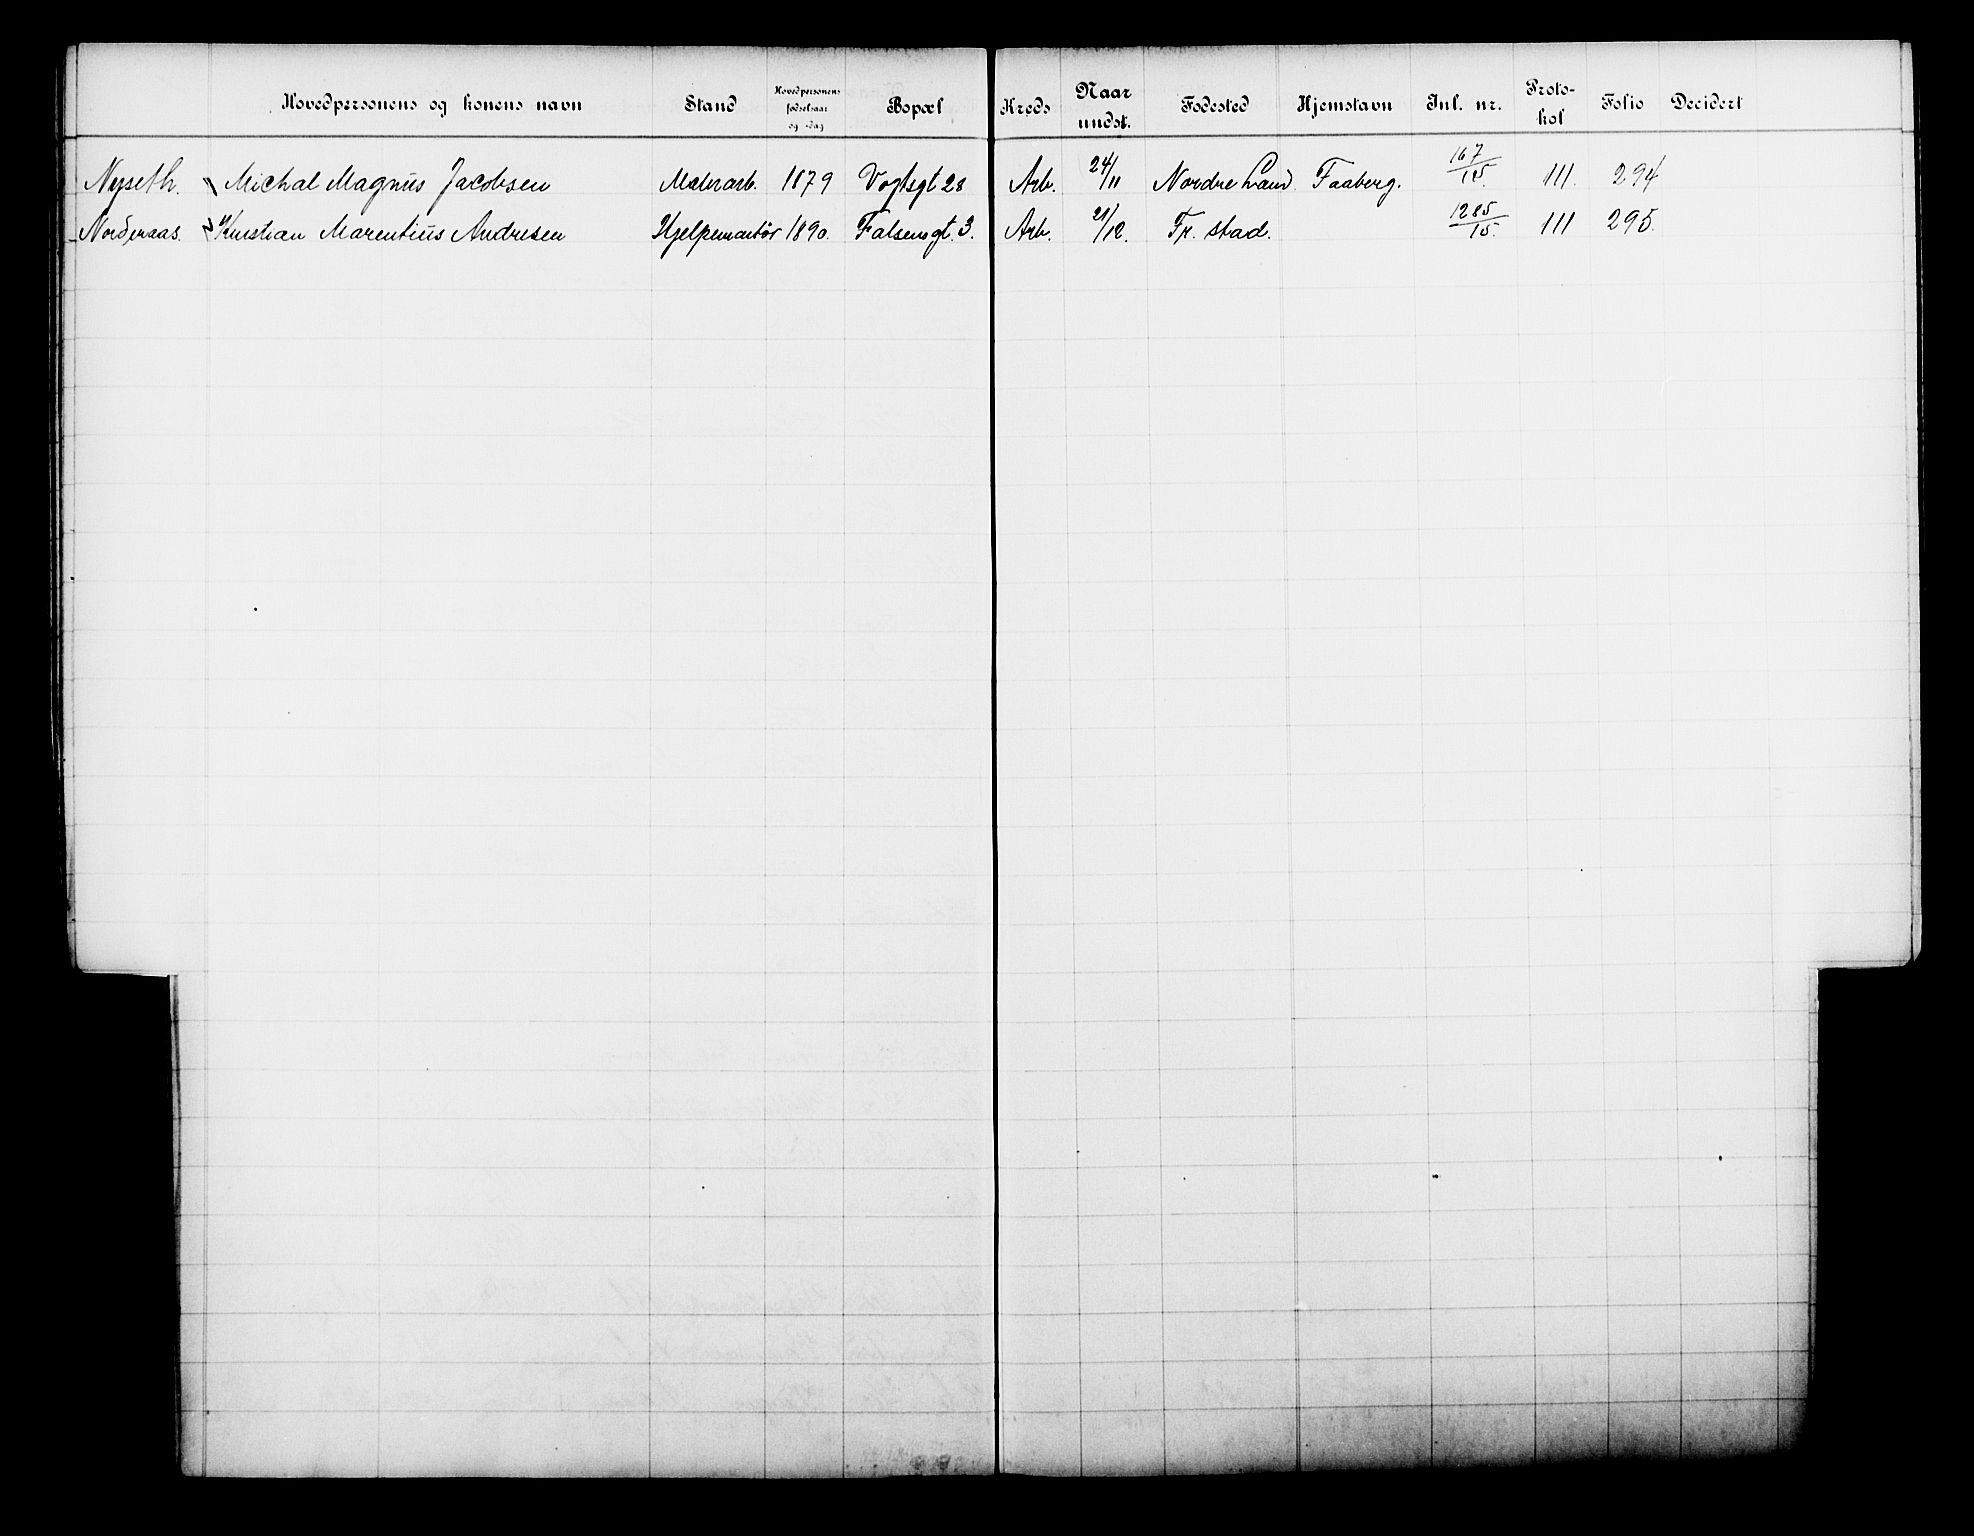 Hovedpersonens og konens navn Stand Hovedpersonens fødselsaar og -dag Bopæl Kreds Naar undst. Fødested Hjemstavn Inl. nr. Protokol Folio Decidert
Nyseth. Michal Magnus Jacobsen Malerarb. 1879 Vogtsgt 28 Arb. 24/11 Nordre Land Faaberg. 167/15. 111. 294
Norderaas. Kristian Marentius Andresen Hjelpemontør 1890. Falsensgt. 3. Arb. 21/12. Fr. stad. 1285/15. 111 295.